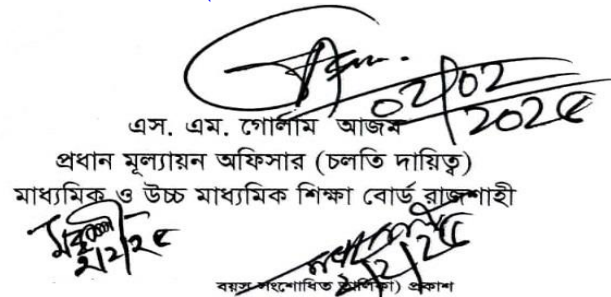 ০২/০২/২০২৫
এস. এম. গোলাম আজম
প্রধান মূল্যায়ন অফিসার (চলতি দায়িত্ব)
মাধ্যমিক ও উচ্চ মাধ্যমিক শিক্ষা বোর্ড রাজশাহী
২/২/২৫
২/২/২৫
বয়স সংশোধিত তালিকা) প্রকাশ